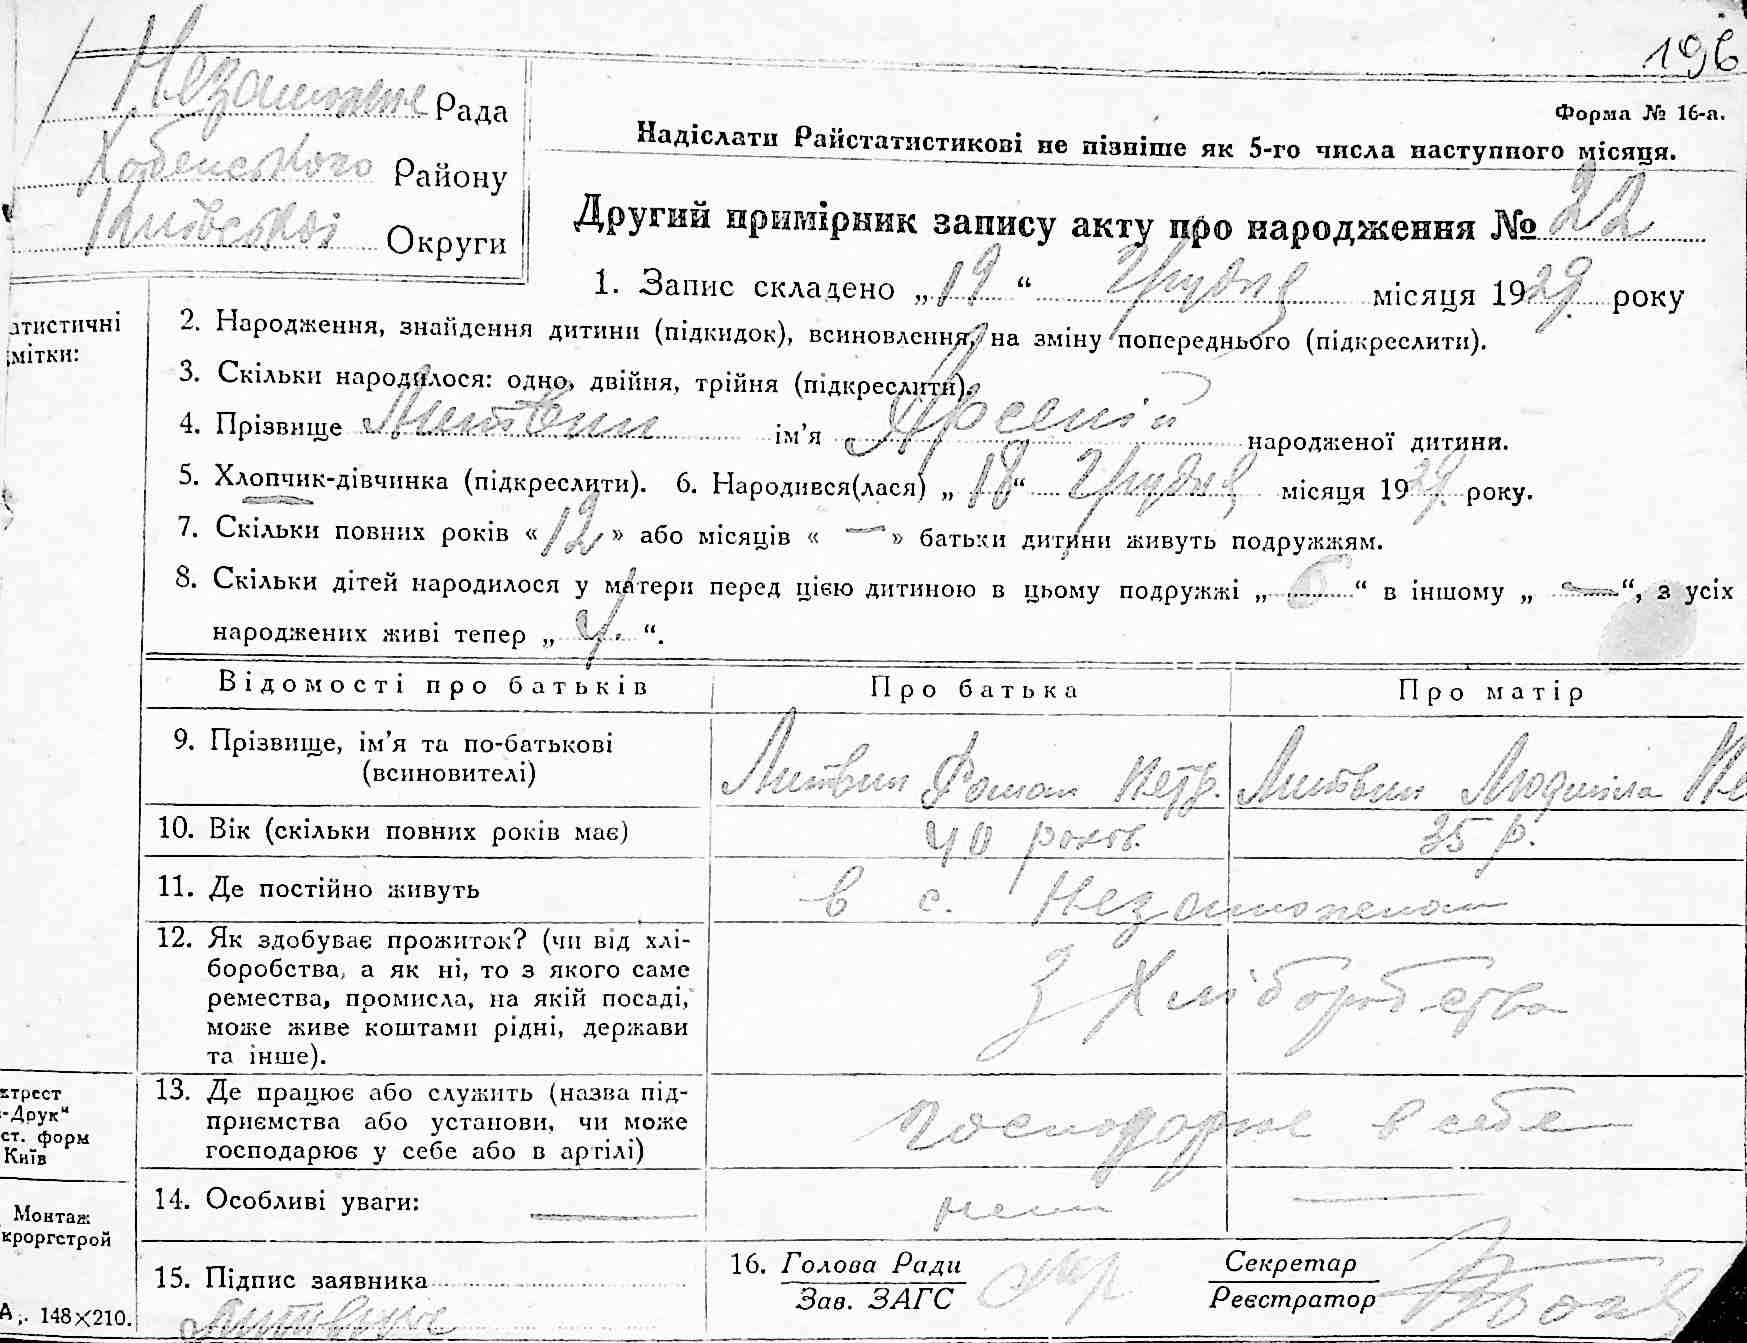 196
Рада
Хабенського Району
Київської Округи
Форма № 16-а.
Надіслати Райстатистикові не пізніше як 5-го числа наступного місяця.
Другий примірник запису акту про народження № 22
1. Запис складено „19“ Грудня місяця 1929 року
атистичні
мітки:
2. Народження, знайдення дитини (підкидок), всиновлення, на зміну попереднього (підкреслити).
3. Скільки народилося: одно, двійня, трійня (підкреслити).
4. Прізвище Литвин ім’я Арсеній народженої дитини.
5. Хлопчик-дівчинка (підкреслити). 6. Народився(лася) „18“ Грудня місяця 1929 року.
7. Скільки повних років «12» або місяців « — » батьки дитини живуть подружжям.
8. Скільки дітей народилося у матери перед цією дитиною в цьому подружжі „ “ в іншому „ — “, з усіх
народжених живі тепер „ 4. “.
Відомості про батьків Про батька Про матір
9. Прізвище, ім’я та по-батькові
(всиновителі)
Литвин Роман Петр. Литвин Людмила
10. Вік (скільки повних років має) 40 років. 35 р.
11. Де постійно живуть в с.
12. Як здобуває прожиток? (чи від хлі-
боробства, а як ні, то з якого саме
ремества, промисла, на якій посаді,
може живе коштами рідні, держави
та інше).
З Хліборобства
13. Де працює або служить (назва під-
приємства або установи, чи може
господарює у себе або в артілі)
господарює в себе
14. Особливі уваги: —
15. Підпис заявника
Литвин
16. Голова Ради
Зав. ЗАГС
Секретар
Реєстратор
ктрест
-Друк“
ст. форм
Київ
Монтаж
кроргстрой
А ;. 148×210.